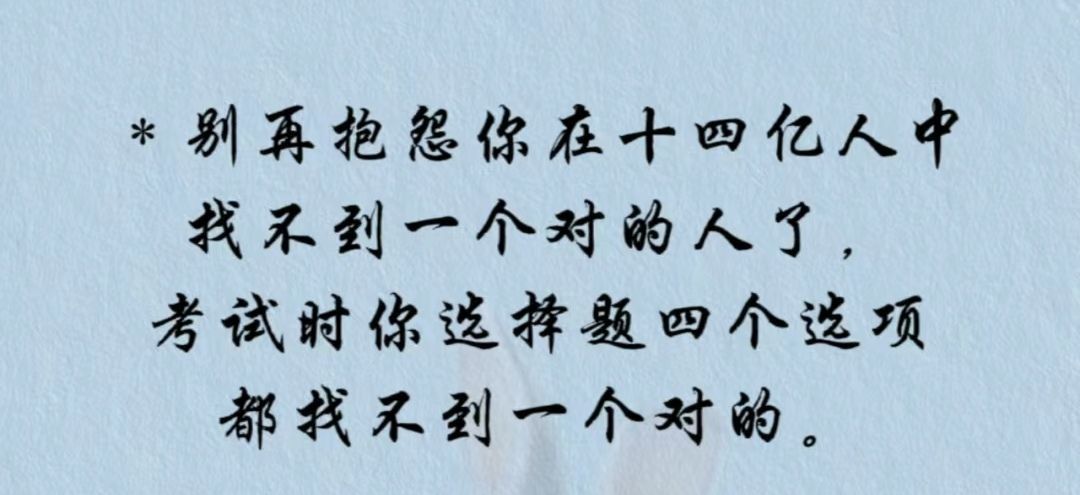 * 别再抱怨你在十四亿人中
找不到一个对的人了，
考试时你选择题四个选项
都找不到一个对的。